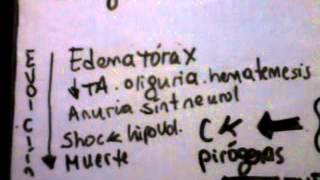 EVOLCIÓN
Edema tórax
↓TA. oliguria. hematemesis
Anuria sint neurol
Shock hipovol.
Muerte
CK
pirógenas